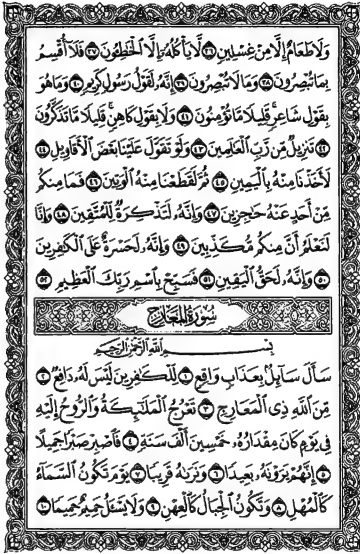 وَلَا طَعَامٌ إِلَّا مِنْ غِسْلِينٍ ٣٦ لَّا يَأْكُلُهُۥٓ إِلَّا ٱلْخَٰطِـُٔونَ ٣٧ فَلَآ أُقْسِمُ
بِمَا تُبْصِرُونَ ٣٨ وَمَا لَا تُبْصِرُونَ ٣٩ إِنَّهُۥ لَقَوْلُ رَسُولٍ كَرِيمٍ ٤٠ وَمَا هُوَ
بِقَوْلِ شَاعِرٍ قَلِيلًا مَّا تُؤْمِنُونَ ٤١ وَلَا بِقَوْلِ كَاهِنٍ قَلِيلًا مَّا تَذَكَّرُونَ
٤٢ تَنزِيلٌ مِّن رَّبِّ ٱلْعَٰلَمِينَ ٤٣ وَلَوْ تَقَوَّلَ عَلَيْنَا بَعْضَ ٱلْأَقَاوِيلِ ٤٤
لَأَخَذْنَا مِنْهُ بِٱلْيَمِينِ ٤٥ ثُمَّ لَقَطَعْنَا مِنْهُ ٱلْوَتِينَ ٤٦ فَمَا مِنكُم
مِّنْ أَحَدٍ عَنْهُ حَٰجِزِينَ ٤٧ وَإِنَّهُۥ لَتَذْكِرَةٌ لِّلْمُتَّقِينَ ٤٨ وَإِنَّا
لَنَعْلَمُ أَنَّ مِنكُم مُّكَذِّبِينَ ٤٩ وَإِنَّهُۥ لَحَسْرَةٌ عَلَى ٱلْكَٰفِرِينَ
٥٠ وَإِنَّهُۥ لَحَقُّ ٱلْيَقِينِ ٥١ فَسَبِّحْ بِٱسْمِ رَبِّكَ ٱلْعَظِيمِ ٥٢
سُورَةُ المَعَارِجِ
بِسْمِ ٱللَّهِ ٱلرَّحْمَٰنِ ٱلرَّحِيمِ
سَأَلَ سَآئِلٌۢ بِعَذَابٍ وَاقِعٍ ١ لِّلْكَٰفِرِينَ لَيْسَ لَهُۥ دَافِعٌ ٢
مِّنَ ٱللَّهِ ذِى ٱلْمَعَارِجِ ٣ تَعْرُجُ ٱلْمَلَٰٓئِكَةُ وَٱلرُّوحُ إِلَيْهِ
فِى يَوْمٍ كَانَ مِقْدَارُهُۥ خَمْسِينَ أَلْفَ سَنَةٍ ٤ فَٱصْبِرْ صَبْرًا جَمِيلًا
٥ إِنَّهُمْ يَرَوْنَهُۥ بَعِيدًا ٦ وَنَرَىٰهُ قَرِيبًا ٧ يَوْمَ تَكُونُ ٱلسَّمَآءُ
كَٱلْمُهْلِ ٨ وَتَكُونُ ٱلْجِبَالُ كَٱلْعِهْنِ ٩ وَلَا يَسْـَٔلُ حَمِيمٌ حَمِيمًا ١٠